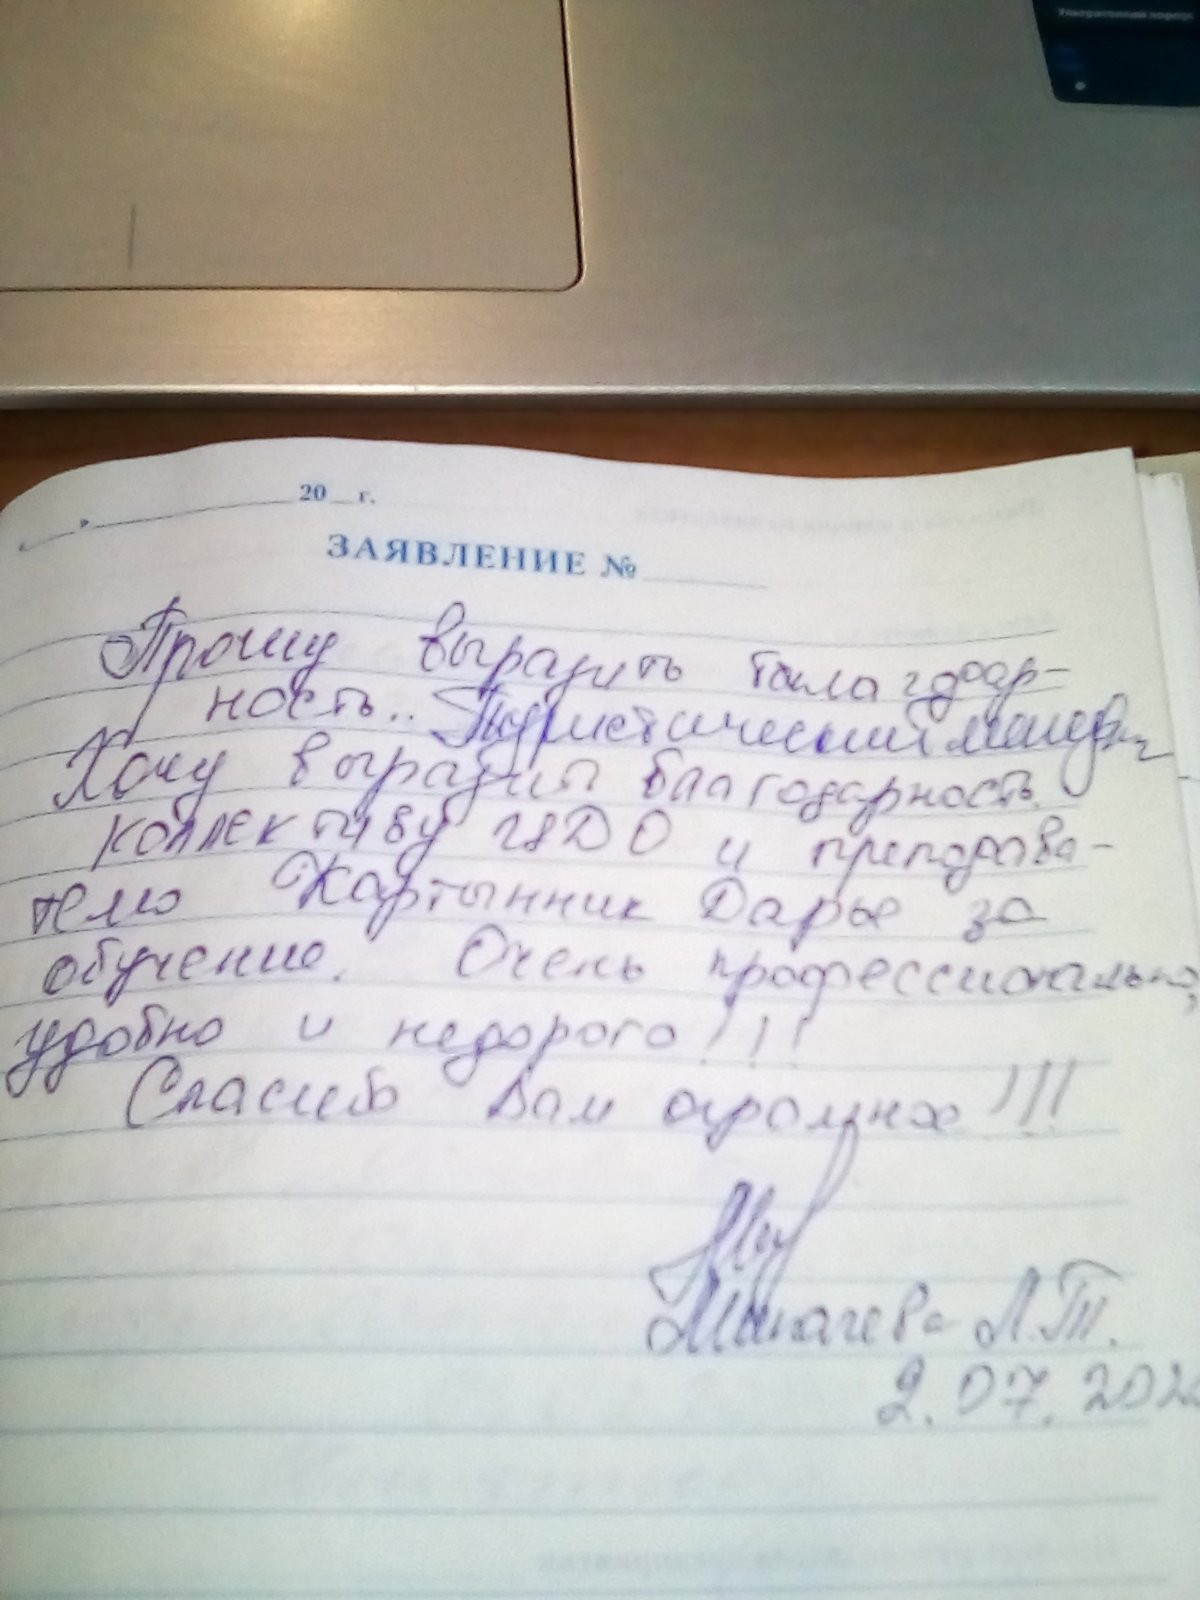 Ультратонкий корпус
„ “ 20 г.
ЗАЯВЛЕНИЕ №
Прошу выразить благодар-
ность.. Туристический менедж
Хочу выразить благодарность
коллективу ЦДО и преподава-
телю Картынник Дарье за
обучение. Очень профессионально,
удобно и недорого!!!
Спасибо Вам огромное!!!
Л.Т.
2.07.202